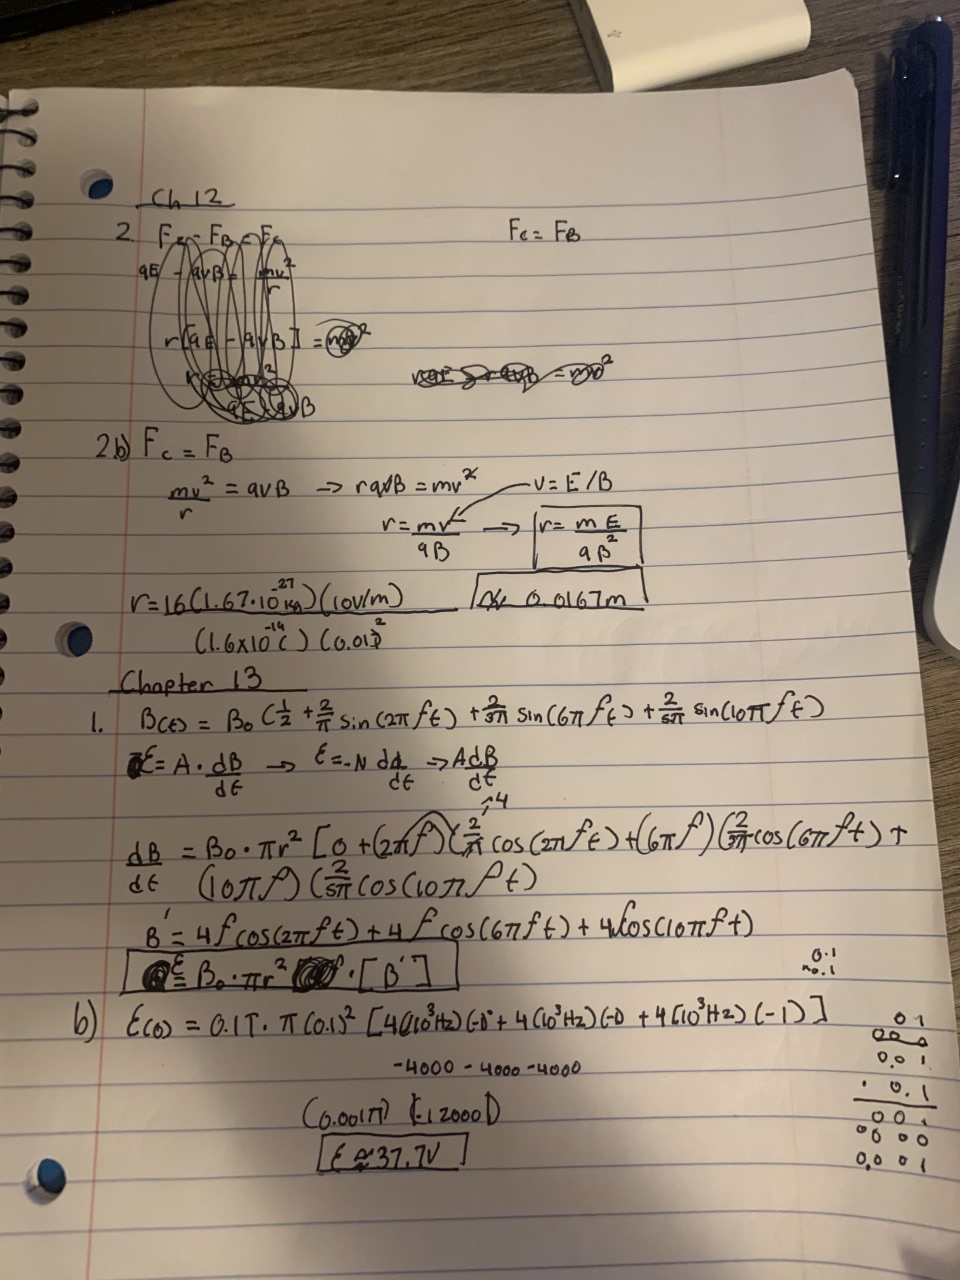 Ch 12
2. F_ - F_B = F_c F_c = F_B
qE - qvB = mv²/r
r[qE - qvB] = mv²
= mv²
qE - qvB
2b) F_c = F_B
mv²/r = qvB → rqvB = mv² v = E/B
r = mv/qB → r = mE/qB²
r = 16(1.67·10⁻²⁷kg)(10V/m) ≈ 0.0167m
(1.6x10⁻¹⁹C)(0.01)²
Chapter 13
1. B(t) = B₀(1/2 + 2/π sin(2πft) + 2/3π sin(6πft) + 2/5π sin(10πft)
ε = A · dB/dt → ε = -N dϕ/dt → A dB/dt
dB/dt = B₀ · πr² [0 + (2πf)(2/π cos(2πft) + (6πf)(2/3π cos(6πft) +
(10πf)(2/5π cos(10πft)
B' = 4f cos(2πft) + 4f cos(6πft) + 4fcos(10πft)
ε = B₀ · πr² · [B']
0.1
x0.1
b) ε(0) = 0.1T · π(0.1)² [4(10³Hz)(-1) + 4(10³Hz)(-1) + 4(10³Hz)(-1)]
01
000
-4000 - 4000 - 4000
0.01
· 0.1
(0.001π) [-12000]
001
0000
ε ≈ 37.7V
0.001